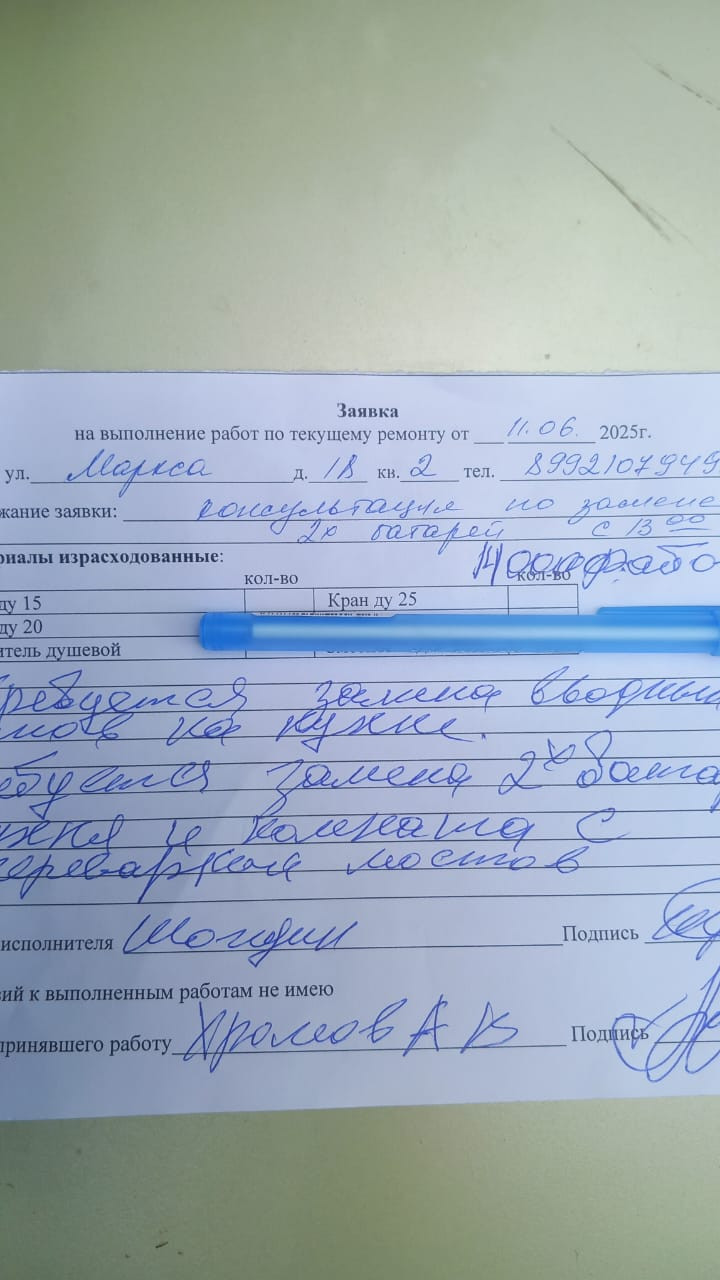 Заявка
на выполнение работ по текущему ремонту от 11.06. 2025г.
ул. Маркса д. 18 кв. 2 тел. 8992107949
жание заявки: консультация по замене
2х батарей с 13 00
риалы израсходованные:
14000р рабо
кол-во кол-во
ду 15 Кран ду 25
ду 20
итель душевой
ребуется замена вводных
на кухне.
ебуется замена 2х
ухня и комната с
переваркой мостов
исполнителя
Подпись
зий к выполненным работам не имею
принявшего работу Хромов А В Подпись